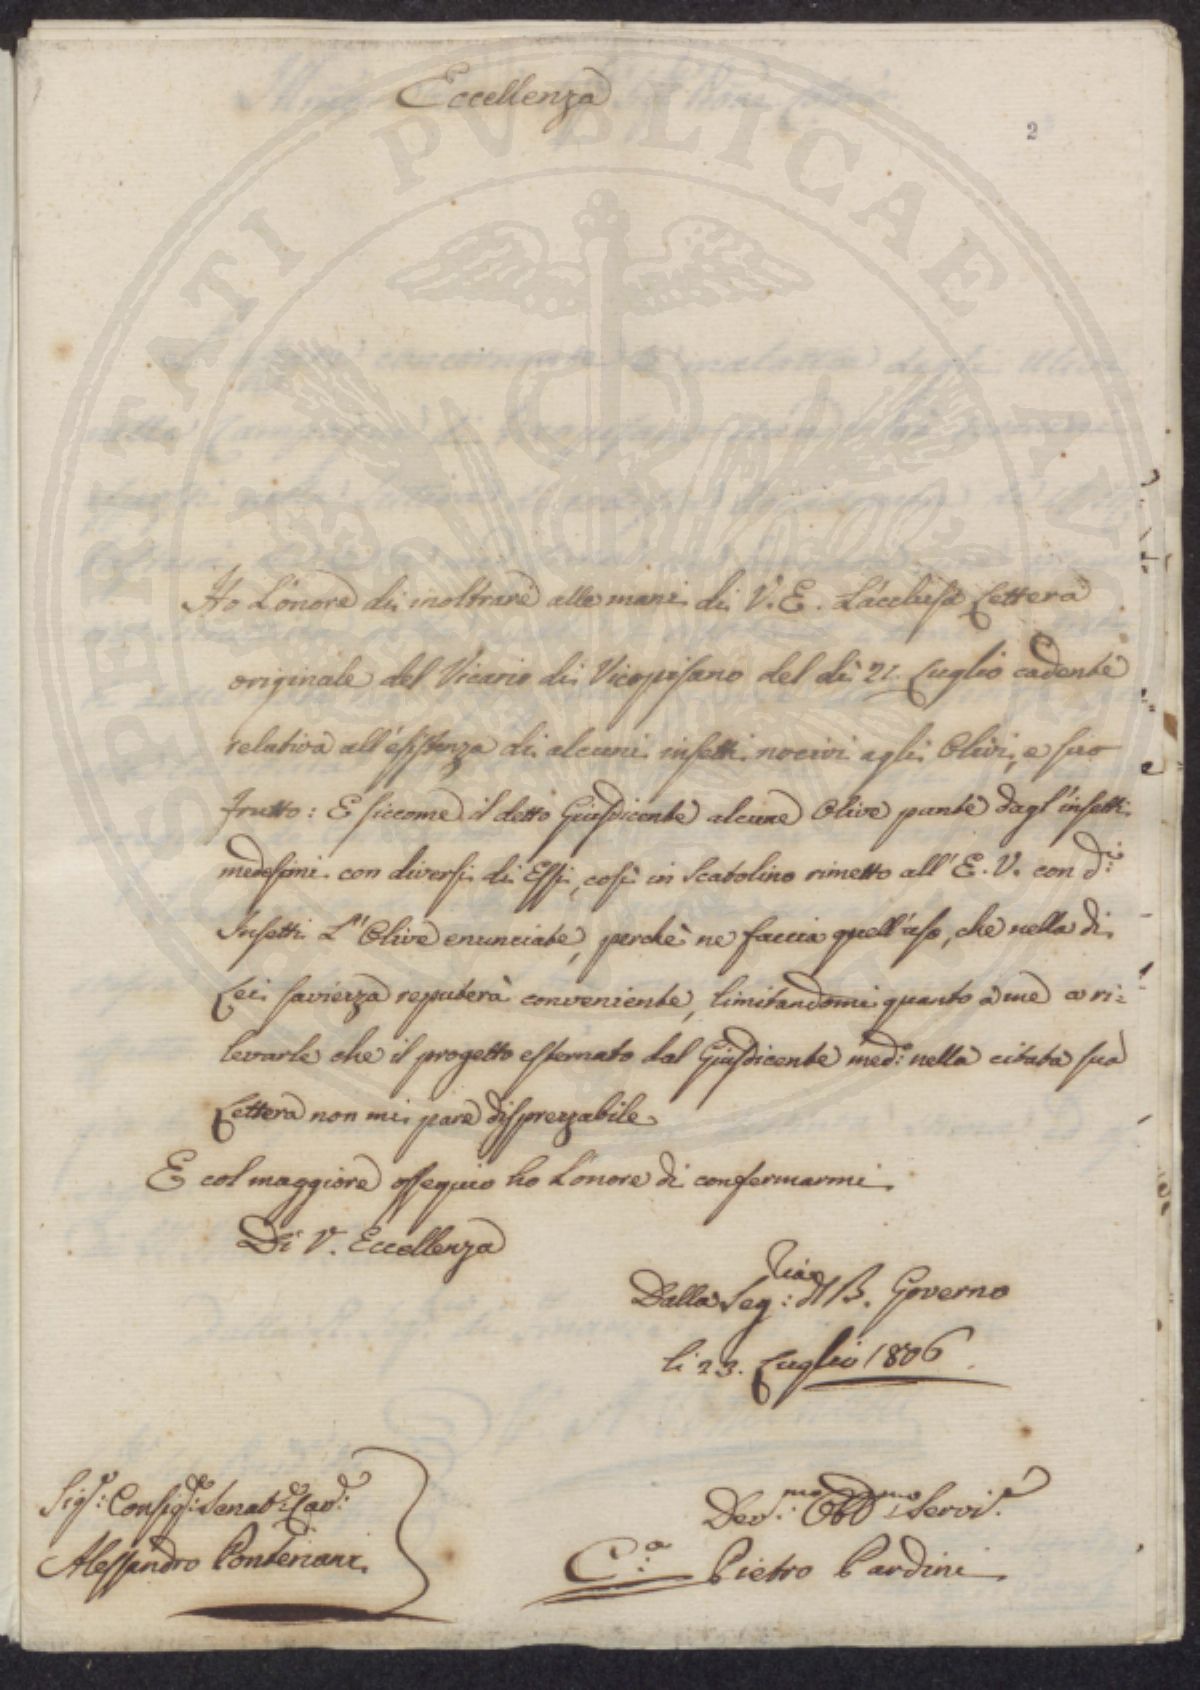 Eccellenza
2
Ho L'onore di inoltrare alle mani di V. E. L'acclusa Lettera
originale del Vicario di Vicopisano del dì 21. Luglio cadente
relativa all'esistenza di alcuni insetti nocivi agli Olivi, e suo
frutto: E siccome il detto Giusdicente alcune Olive punte dagl'insetti
medesimi con diversi di Essi, così in Scatolino rimetto all'E. V. con d.i
Insetti L'Olive enunciate, perchè ne faccia quell'uso, che nella di
Lei saviezza reputerà conveniente, limitandomi quanto a me a ri:
levarle che il progetto esternato dal Giusdicente med.o nella citata sua
Lettera non mi pare disprezzabile
E col maggiore ossequio ho L'onore di confermarmi
Di V. Eccellenza
Dalla Seg:ria del B. Governo
li 23. Luglio 1806
Sig.r: Consig.re: Senat.re Cav.re:
Alessandro Pontenani
Dev.mo: Obb.mo Servi.e
C.a: Pietro Pardini
SPERITATI PUBLICAE AUG